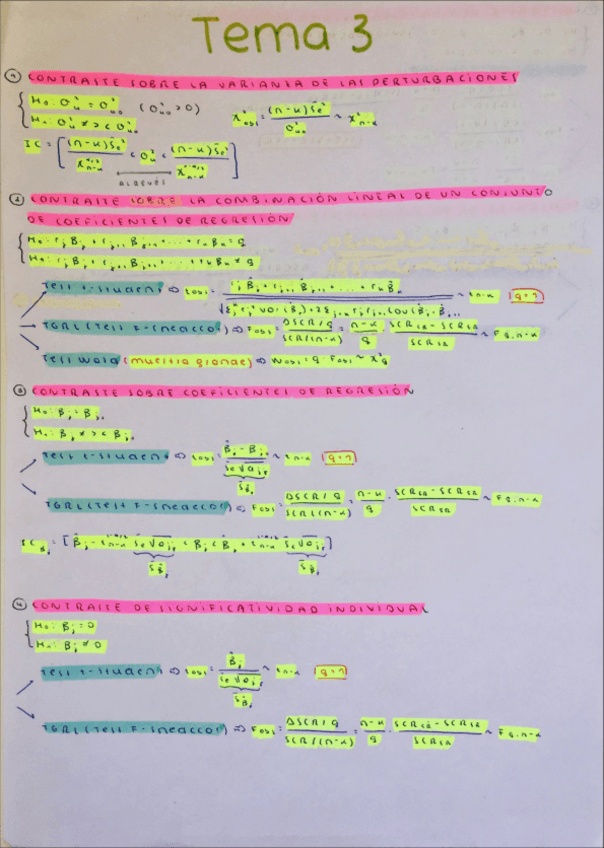 Tema 3
① CONTRASTE SOBRE LA VARIANZA DE LAS PERTURBACIONES
H₀: σ²ᵤ = σ²ᵤ₀ (σ²ᵤ₀ > 0)
Hₐ: σ²ᵤ ≠ > < σ²ᵤ₀
χ²obs = (n-k)S²ₑ / σ²ᵤ₀ ~ χ²n-k
IC = [(n-k)S²ₑ / χ²n-k < σ²ᵤ < (n-k)S²ₑ / χ²n-k]
AL REVÉS
② CONTRASTE SOBRE LA COMBINACIÓN LINEAL DE UN CONJUNTO
DE COEFICIENTES DE REGRESIÓN
H₀: rⱼBⱼ + rⱼ₊₁Bⱼ₊₁ + ... + rₖBₖ = q
Hₐ: rⱼBⱼ + rⱼ₊₁Bⱼ₊₁ + ... + rₖBₖ ≠ q
Test t-student ⇒ tobs = ~ tn-k q=1
TGRL (Test F-Snedecor) ⇒ Fobs = ΔSCR/q / SCR/(n-k) = n-k / q · SCRCR - SCRSR / SCRSR ~ Fq,n-k
Test Wald (muestra grande) ⇒ Wobs = q · Fobs ~ χ²q
③ CONTRASTE SOBRE COEFICIENTES DE REGRESIÓN
H₀: Bⱼ = Bⱼ₀
Hₐ: Bⱼ ≠ > < Bⱼ₀
Test t-student ⇒ tobs = B̂ⱼ - Bⱼ₀ / Sₑ√aⱼⱼ ~ tn-k q=1
SB̂ⱼ
TGRL (Test F-Snedecor) ⇒ Fobs = ΔSCR/q / SCR/(n-k) = n-k / q · SCRCR - SCRSR / SCRSR ~ Fq,n-k
ICBⱼ = [B̂ⱼ - tn-k Sₑ√aⱼⱼ < Bⱼ < B̂ⱼ + tn-k Sₑ√aⱼⱼ]
SB̂ⱼ SB̂ⱼ
④ CONTRASTE DE SIGNIFICATIVIDAD INDIVIDUAL
H₀: Bⱼ = 0
Hₐ: Bⱼ ≠ 0
Test t-student ⇒ tobs = B̂ⱼ / Sₑ√aⱼⱼ ~ tn-k q=1
SB̂ⱼ
TGRL (Test F-Snedecor) ⇒ Fobs = ΔSCR/q / SCR/(n-k) = n-k / q · SCRCR - SCRSR / SCRSR ~ Fq,n-k